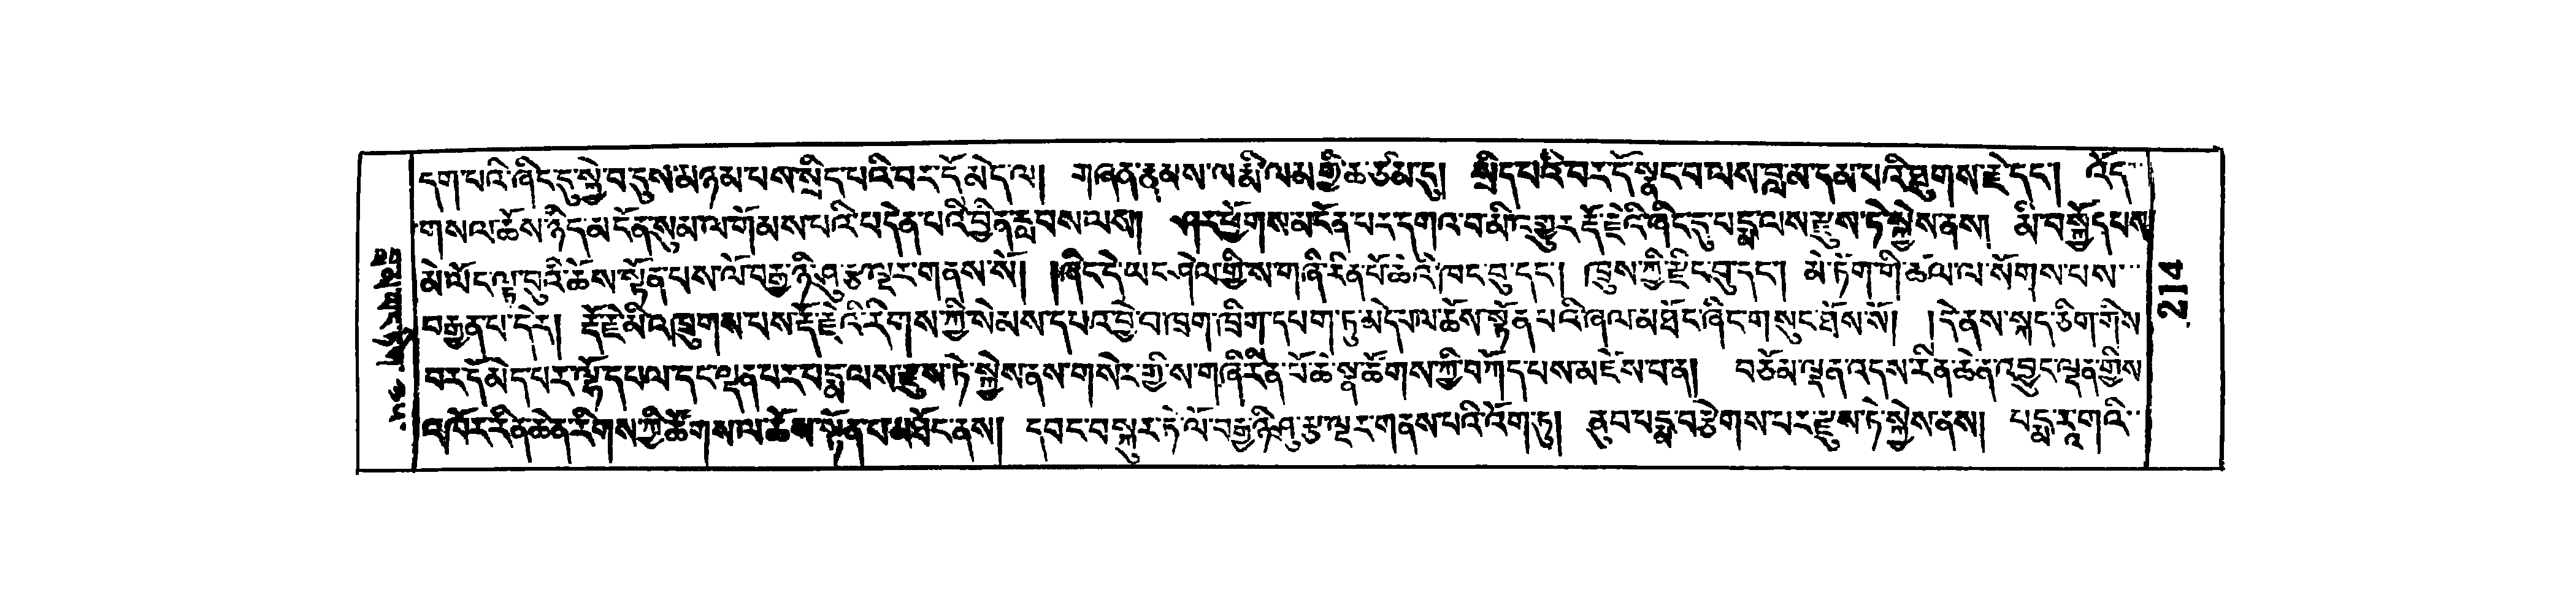 དག་པའི་ཞིང་དུ་སྐྱེ་བ་དུས་མཉམ་པས་སྲིད་པའི་བར་དོ་མེད་ལ། གཞན་རྣམས་ལ་རྨི་ལམ་གྱི་ཆ་ཙམ་དུ། སྲིད་པའི་བར་དོ་སྣང་བ་ལས་བླ་མ་དམ་པའི་ཐུགས་རྗེ་དང་། འོད་
གསལ་ཆོས་ཉིད་མངོན་སུམ་ལ་གོམས་པའི་བདེན་པའི་བྱིན་རླབས་ལས། ཤར་ཕྱོགས་མངོན་པར་དགའ་བ་མི་འགྱུར་རྡོ་རྗེའི་ཞིང་དུ་པདྨ་ལས་རྫུས་ཏེ་སྐྱེས་ནས། མི་བསྐྱོད་པས་
མེ་ལོང་ལྟ་བུའི་ཆོས་སྟོན་པས་ལོ་བརྒྱ་ཉི་ཤུ་རྩ་ལྔར་གནས་སོ། །ཞིང་དེ་ཡང་ཤེལ་གྱིས་གཞི་རིན་པོ་ཆེའི་ཁང་བུ་དང་། ཁྲུས་ཀྱི་རྫིང་བུ་དང་། མེ་ཏོག་གི་ཚལ་ལ་སོགས་པས་
བརྒྱན་པ་དེར། རྡོ་རྗེ་མི་འཁྲུགས་པས་རྡོ་རྗེའི་རིགས་ཀྱི་སེམས་དཔའ་བྱེ་བ་ཁྲག་ཁྲིག་དཔག་ཏུ་མེད་ལ་ཆོས་སྟོན་པའི་ཞལ་མཐོང་ཞིང་གསུང་ཐོས་སོ། །དེ་ནས་སྐད་ཅིག་གིས་
བར་དོ་མེད་པར་ལྷོ་དཔལ་དང་ལྡན་པར་པདྨ་ལས་རྫུས་ཏེ་སྐྱེས་ནས་གསེར་གྱིས་གཞི་རིན་པོ་ཆེ་སྣ་ཚོགས་ཀྱི་བཀོད་པས་མཛེས་པ་ན། བཅོམ་ལྡན་འདས་རིན་ཆེན་འབྱུང་ལྡན་གྱིས་
འཁོར་རིན་ཆེན་རིགས་ཀྱི་ཚོགས་ལ་ཆོས་སྟོན་པ་མཐོང་ནས། དབང་བསྐུར་ཏེ་ལོ་བརྒྱ་ཉི་ཤུ་རྩ་ལྔར་གནས་པའི་འོག་ཏུ། ནུབ་པདྨ་བརྩེགས་པར་རྫུས་ཏེ་སྐྱེས་ནས། པདྨ་རཱ་གའི་